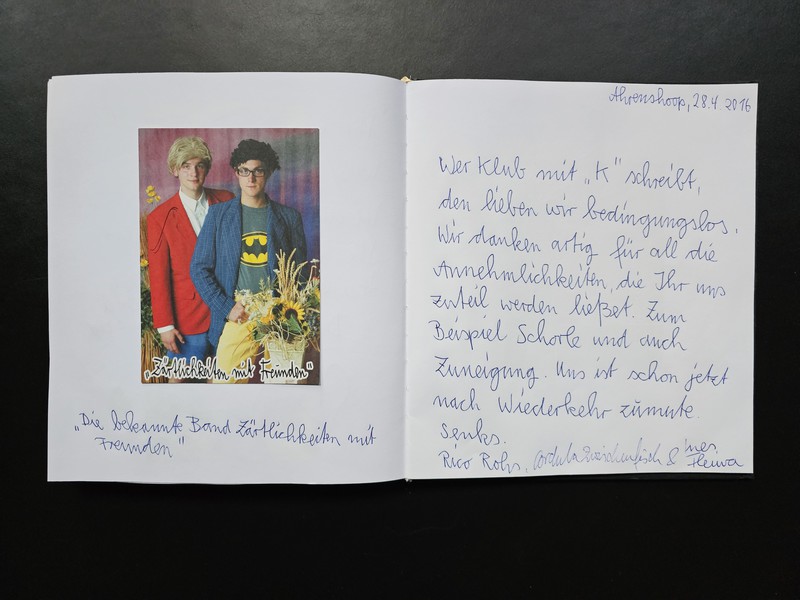 „Zärtlichkeiten mit Freunden"
„Die bekannte Band Zärtlichkeiten mit
Freunden"
Ahrenshoop, 28.4 2016
Wer Klub mit „K" schreibt,
den lieben wir bedingungslos.
Wir danken artig für all die
Annehmlichkeiten, die Ihr uns
zuteil werden ließet. Zum
Beispiel Schorle und auch
Zuneigung. Uns ist schon jetzt
nach Wiederkehr zumute.
Senks.
Rico Rohs, Cordula Zwischenfisch & Ines
Fleiwa